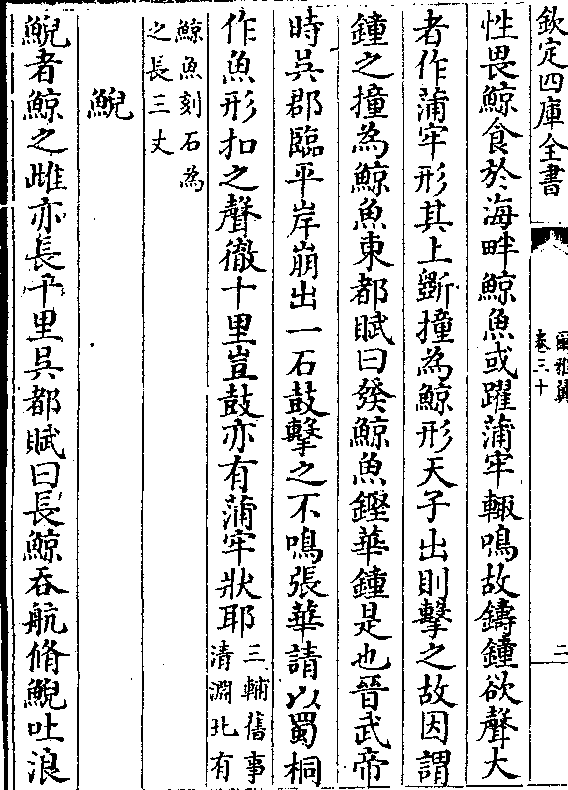 欽定四庫全書
爾雅翼
卷三十
二
性畏鯨食於海畔鯨魚或躍蒲牢輙鳴故鑄鐘欲聲大
者作蒲牢形其上斵撞為鯨形天子出則擊之故因謂
鐘之撞為鯨魚東都賦曰發鯨魚鏗華鐘是也晉武帝
時吳郡臨平岸崩出一石鼓擊之不鳴張華請以蜀桐
作魚形扣之聲徹十里豈鼓亦有蒲牢狀耶三輔舊事
清淵北有
鯨魚刻石為
之長三丈
鯢
鯢者鯨之雌亦長千里吳都賦曰長鯨吞航脩鯢吐浪